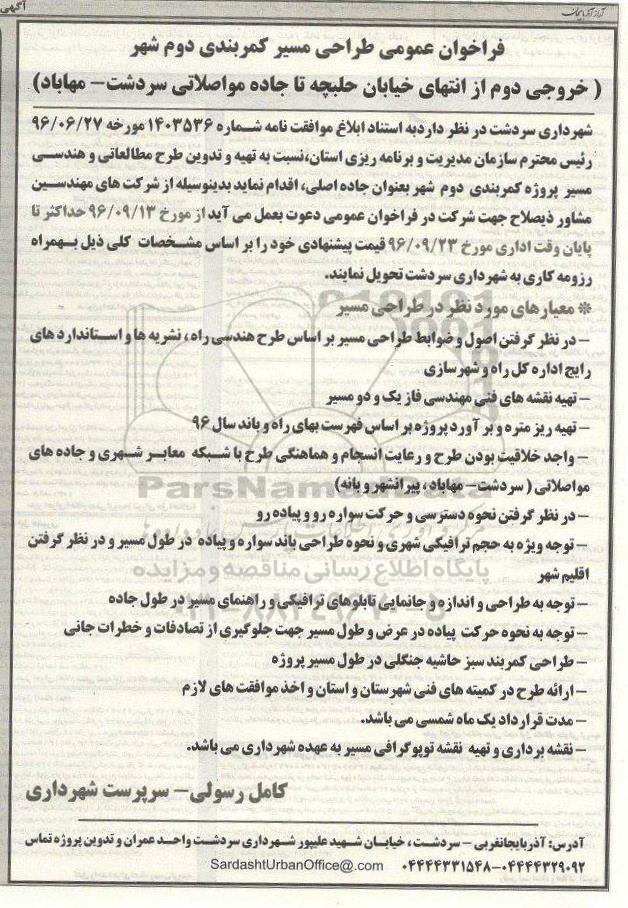 آگهی
آراز آذربایجان
فراخوان عمومی طراحی مسیر کمربندی دوم شهر
( خروجی دوم از انتهای خیابان حلبچه تا جاده مواصلاتی سردشت- مهاباد)
شهرداری سردشت در نظر داردبه استناد ابلاغ موافقت نامه شماره ۱۴۰۳۵۳۶ مورخه ۹۶/۰۶/۲۷
رئیس محترم سازمان مدیریت و برنامه ریزی استان،نسبت به تهیه و تدوین طرح مطالعاتی و هندسی
مسیر پروژه کمربندی دوم شهر بعنوان جاده اصلی، اقدام نماید بدینوسیله از شرکت های مهندسین
مشاور ذیصلاح جهت شرکت در فراخوان عمومی دعوت بعمل می آید از مورخ ۹۶/۰۹/۱۳ حداکثر تا
پایان وقت اداری مورخ ۹۶/۰۹/۲۳ قیمت پیشنهادی خود را بر اساس مشخصات کلی ذیل بهمراه
رزومه کاری به شهرداری سردشت تحویل نمایند.
* معیارهای مورد نظر در طراحی مسیر
- در نظر گرفتن اصول و ضوابط طراحی مسیر بر اساس طرح هندسی راه ، نشریه ها و استاندارد های
رایج اداره کل راه و شهرسازی
- تهیه نقشه های فنی مهندسی فاز یک و دو مسیر
- تهیه ریز متره و بر آورد پروژه بر اساس فهرست بهای راه و باند سال ۹۶
- واجد خلاقیت بودن طرح و رعایت انسجام و هماهنگی طرح با شبکه معابر شهری و جاده های
مواصلاتی ( سردشت- مهاباد ، پیرانشهر و بانه)
- در نظر گرفتن نحوه دسترسی و حرکت سواره رو و پیاده رو
- توجه ویژه به حجم ترافیکی شهری و نحوه طراحی باند سواره و پیاده در طول مسیر و در نظر گرفتن
اقلیم شهر
- توجه به طراحی و اندازه و جانمایی تابلوهای ترافیکی و راهنمای مسیر در طول جاده
- توجه به نحوه حرکت پیاده در عرض و طول مسیر جهت جلوگیری از تصادفات و خطرات جانی
- طراحی کمربند سبز حاشیه جنگلی در طول مسیر پروژه
- ارائه طرح در کمیته های فنی شهرستان و استان و اخذ موافقت های لازم
- مدت قرارداد یک ماه شمسی می باشد.
- نقشه برداری و تهیه نقشه توپوگرافی مسیر به عهده شهرداری می باشد.
کامل رسولی- سرپرست شهرداری
آدرس: آذربایجانغربی - سردشت ، خیابان شهید علیپور شهرداری سردشت واحد عمران و تدوین پروژه تماس
۰۴۴۴۴۳۳۱۵۴۸-۰۴۴۴۴۳۲۹۰۹۲ SardashtUrbanOffice@.com
ParsNamadData
پایگاه اطلاع رسانی مناقصه و مزایده